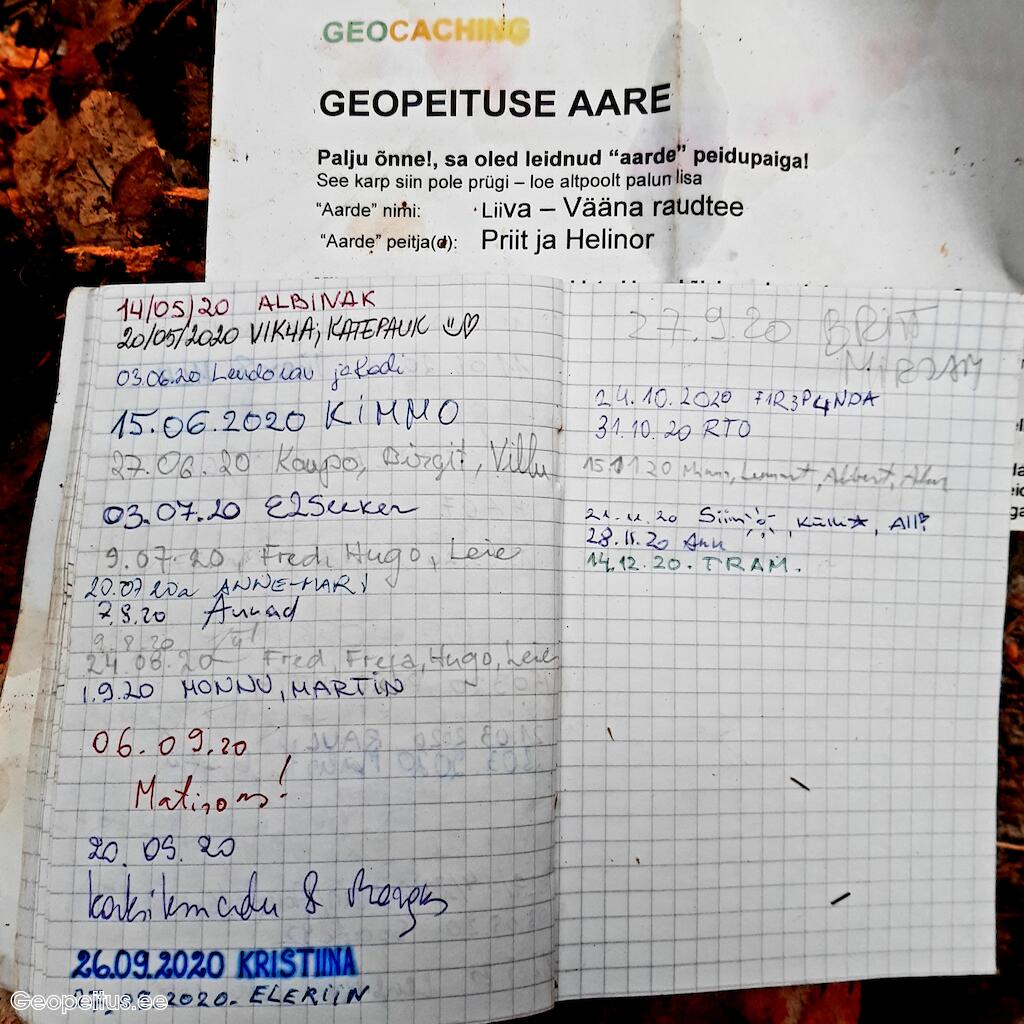 GEOCACHING
GEOPEITUSE AARE
Palju õnne!, sa oled leidnud “aarde” peidupaiga!
See karp siin pole prügi – loe altpoolt palun lisa
“Aarde” nimi: Liiva – Vääna raudtee
“Aarde” peitja(d): Priit ja Helinor
14/05/20 ALBINAK
20/05/2020 VIK4A; KATEPAUK
03.06.20
15.06.2020 KiMMO
27.06.20 Kaupo, Birgit, Villu
03.07.20 E2Seeker
9.07.20, Fred, Hugo, Leie
20.07.20a ANNE-MARI
7.8.20 Annad
9.8.20
24.08.20 Fred, Freja, Hugo, Leie
1.9.20 MONNU, MARTIN
06.09.20
!
20.09.20
&
26.09.2020 KRISTIINA
2020. ELERIIN
27.9.20 BRITT
MIRJAM
24.10.2020 F1R3P4NDA
31.10.20 RTO
15.11.20 Lennart, Albert,
21.11.20 Siim, Külli, Alla
28.11.20 Ann
14.12.20. TRAM.
Geopeitus.ee